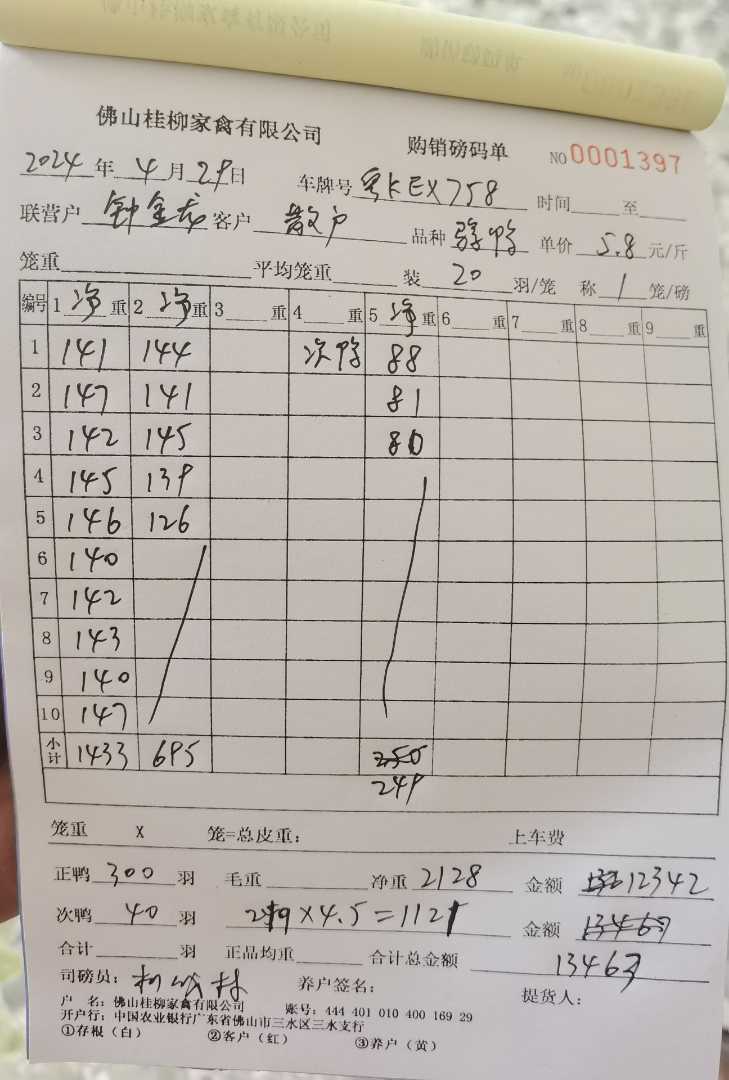 佛山桂柳家禽有限公司 购销磅码单 NO 0001397
2024年 4月 29日 车牌号 粤KEX758 时间 至
联营户 钟金龙 客户 散户 品种 骡鸭 单价 5.8 元/斤
笼重 平均笼重 装 20 羽/笼 称 1 笼/磅
编号 1 净 重 2 净 重 3 重 4 重 5 净 重 6 重 7 重 8 重 9 重
1 141 144 次鸭 88
2 147 141 81
3 142 145 80
4 145 139
5 146 126
6 140
7 142
8 143
9 140
10 147
小计 1433 695 250
249
笼重 X 笼=总皮重: 上车费
正鸭 300 羽 毛重 净重 2128 金额 12342
次鸭 40 羽 249×4.5=1121 金额 13467
合计 羽 正品均重 合计总金额 13463
司磅员: 养户签名: 提货人:
户 名: 佛山桂柳家禽有限公司 账号: 444 401 010 400 169 29
开户行: 中国农业银行广东省佛山市三水区三水支行
①存根(白) ②客户(红) ③养户(黄)